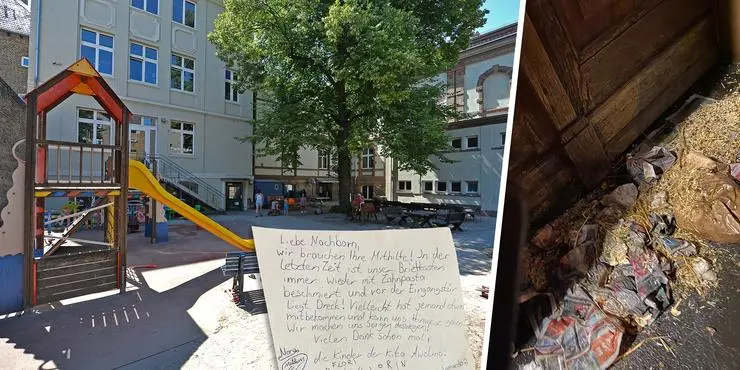 Liebe Nachbarn,
wir brauchen Ihre Mithilfe! In der
letzten Zeit ist unser Briefkasten
immer wieder mit Zahnpasta
beschmiert und vor der Eingangstür
liegt Dreck! Vielleicht hat jemand etwas
mitbekommen und kann uns Hinweise geben.
Wir machen uns Sorgen deswegen!
Vielen Dank schon mal,
die Kinder der Kita
FLORI
LORIN